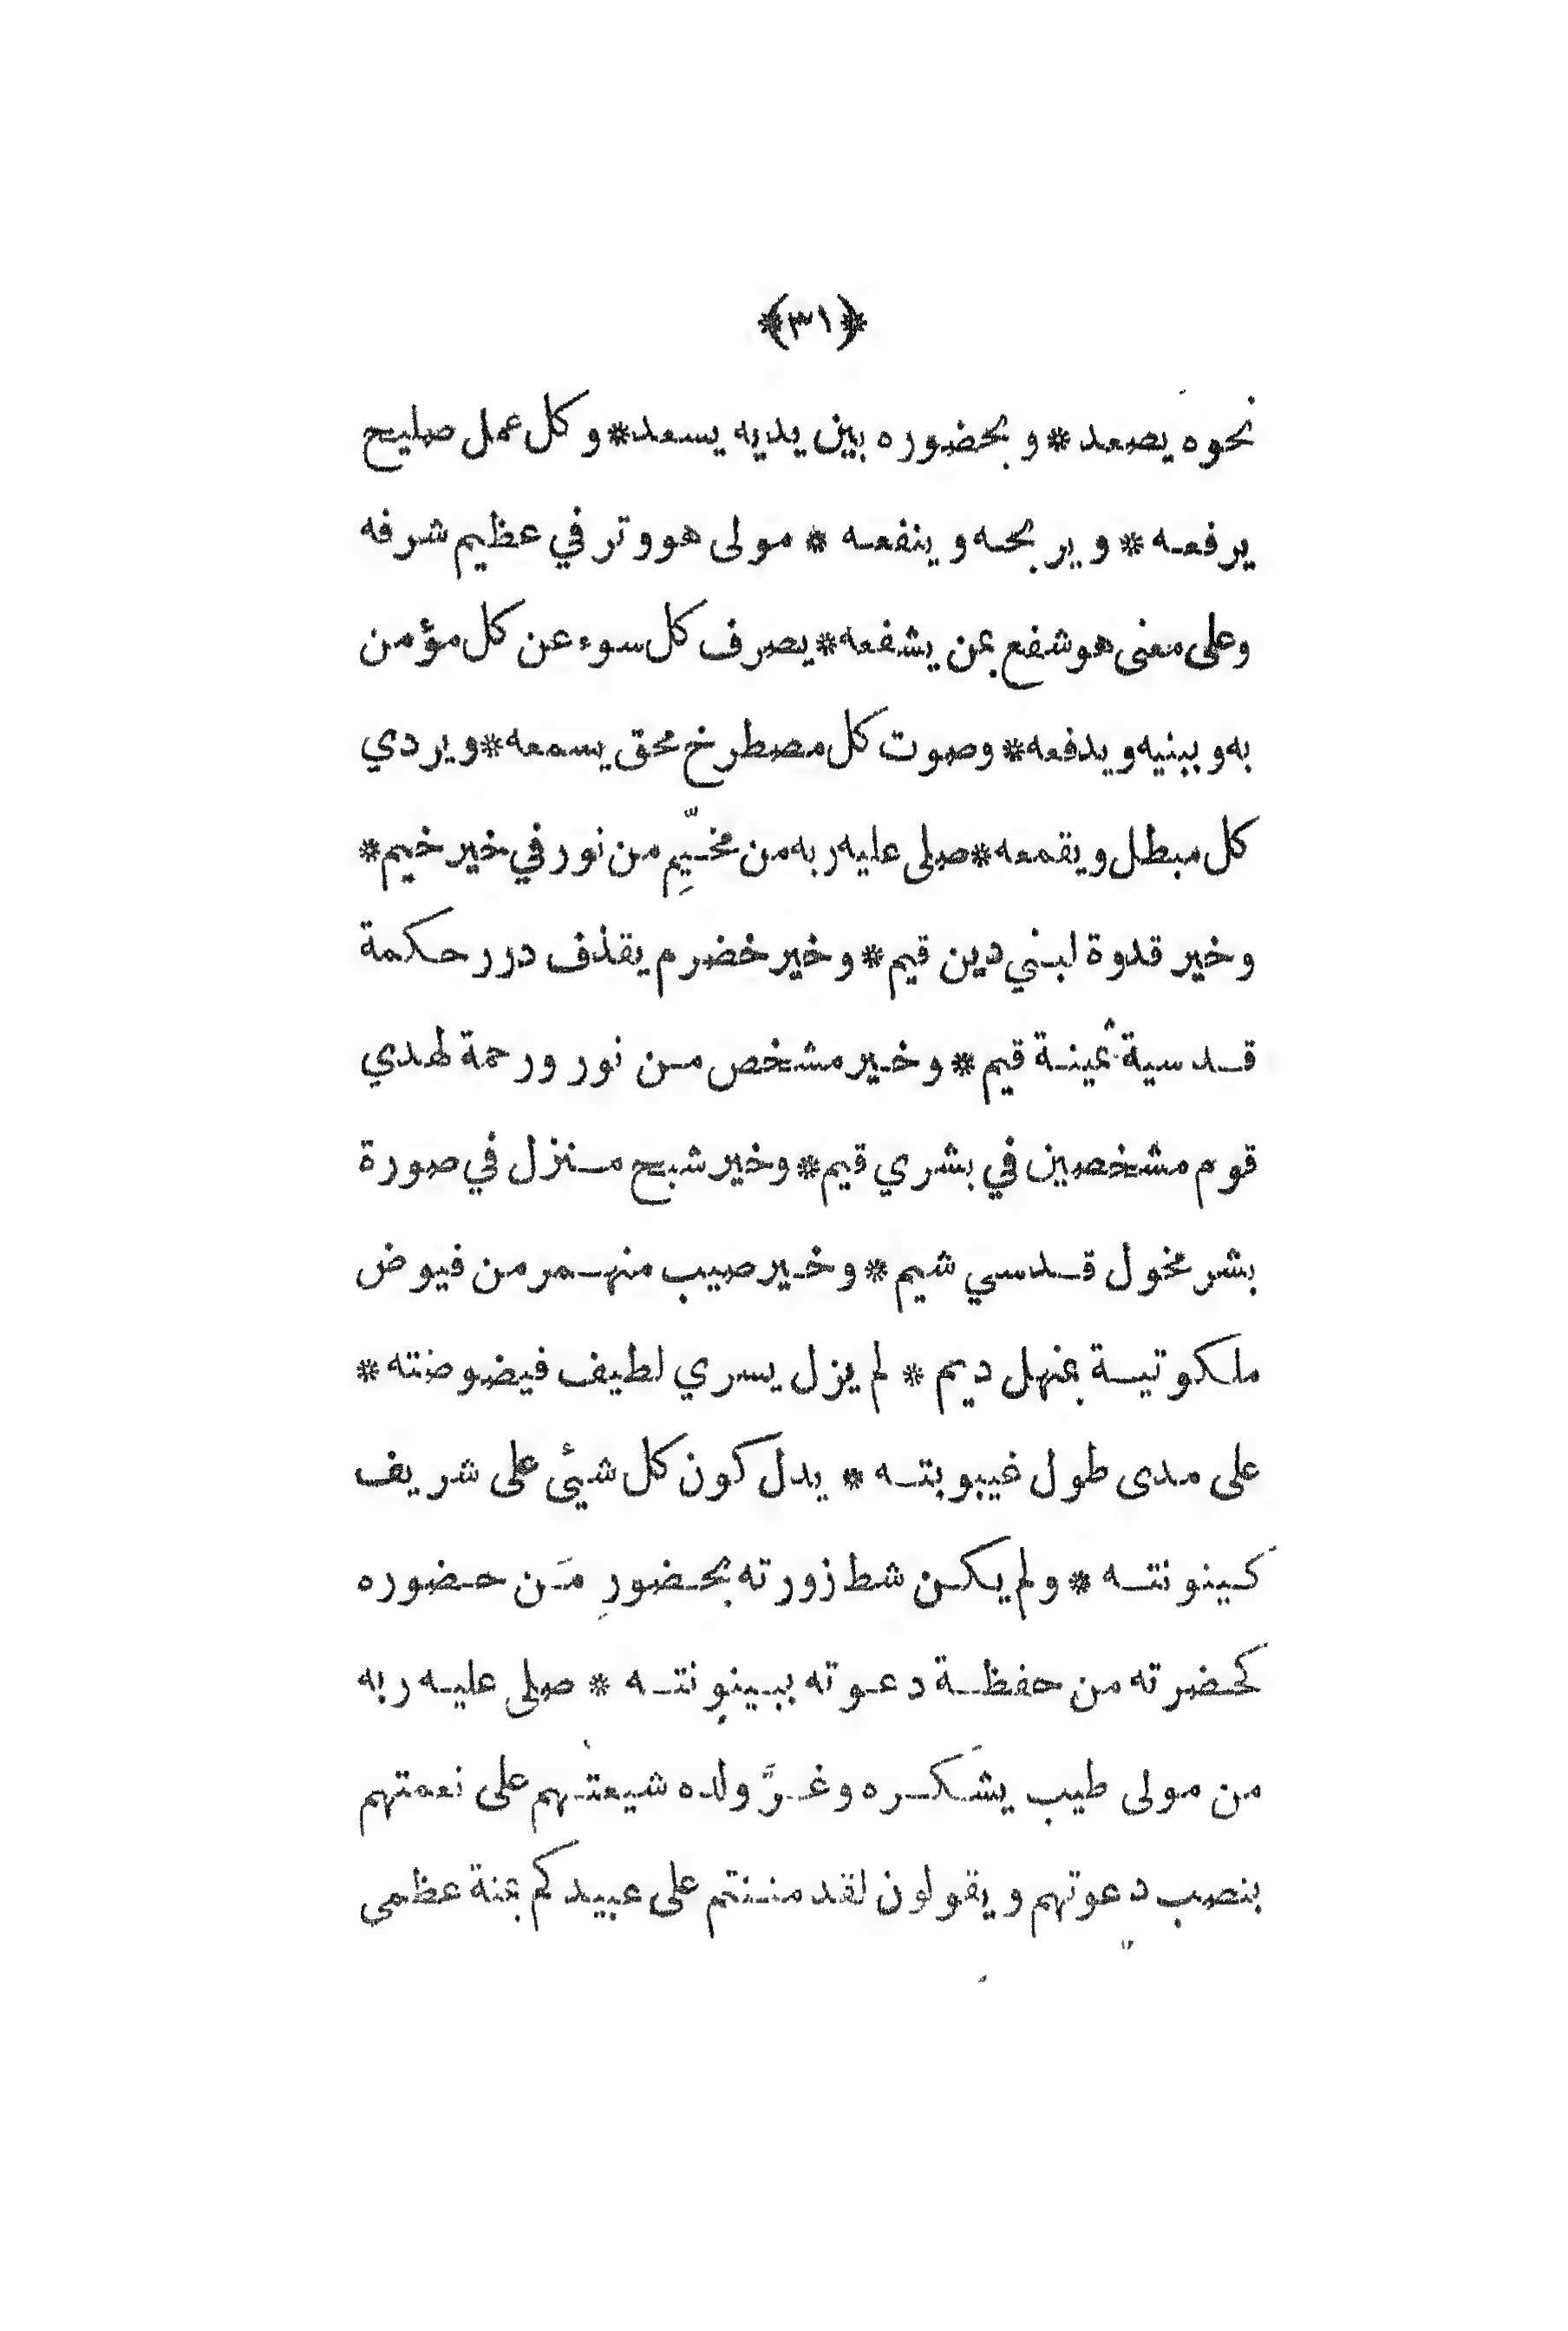 ﴿٣١﴾
نحوه يصعد * و بحضوره بين يديه يسعد * و كل عمل صليح
يرفعه * و يربحه و ينفعه * مولى هو وتر في عظيم شرفه
وعلى معنى هو شفع بمن يشفعه * يصرف كل سوء عن كل مؤمن
به و ببنيه و يدفعه * وصوت كل مصطرخ محق يسمعه * و يردي
كل مبطل و يقمعه * صلى عليه ربه من مخيِّم من نور في خير خيم *
و خير قدوة لبني دين قيم * و خير خضرم يقذف درر حكمة
قدسية ثمينة قيم * و خير مشخص من نور ورحمة لهدي
قوم مشخصين في بشري قيم * وخير شبح منزل في صورة
بشر مخول قدسي شيم * و خير صيب منهمر من فيوض
ملكوتية بمنهل ديم * لم يزل يسري لطيف فيضوضته *
على مدى طول غيبوبته * يدل كون كل شيئ على شريف
كينونته * و لم يكن شط زورته بحضورِ مَن حضوره
كحضرته من حفظة دعوته ببينونته * صلى عليه ربه
من مولى طيب يشكره وغرَّ ولده شيعتهم على نعمتهم
بنصب دعوتهم و يقولون لقد مننتم على عبيدكم بمنة عظمى